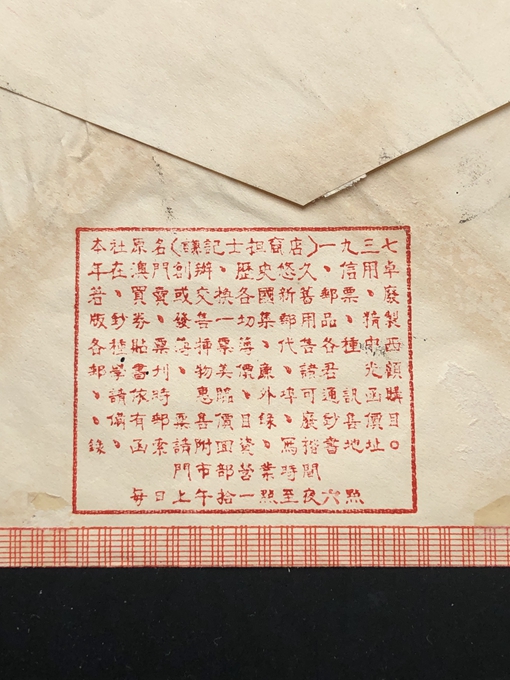 本社原名(謙記士担商店)一九三七
年在澳門創辦、歷史悠久、信用卓
著、買賣或交換各國新舊郵票、廢
版鈔券、發售一切集郵用品、精製
各種貼票簿、插票簿、代售各種西
郵學書刊、物美價廉、諸君光顧
、請依時惠臨、外埠可通訊函購
、備有郵票售價目錄、廢鈔價目
錄、函索請附回資、地址。
門市部營業時間
每日上午拾一點至夜六點